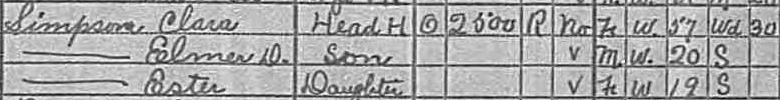 Simpson Clara Head H O 2500 R No F W 57 Wd 30
—— Elmer D. Son V M W. 20 S
—— Ester Daughter V F W 19 S